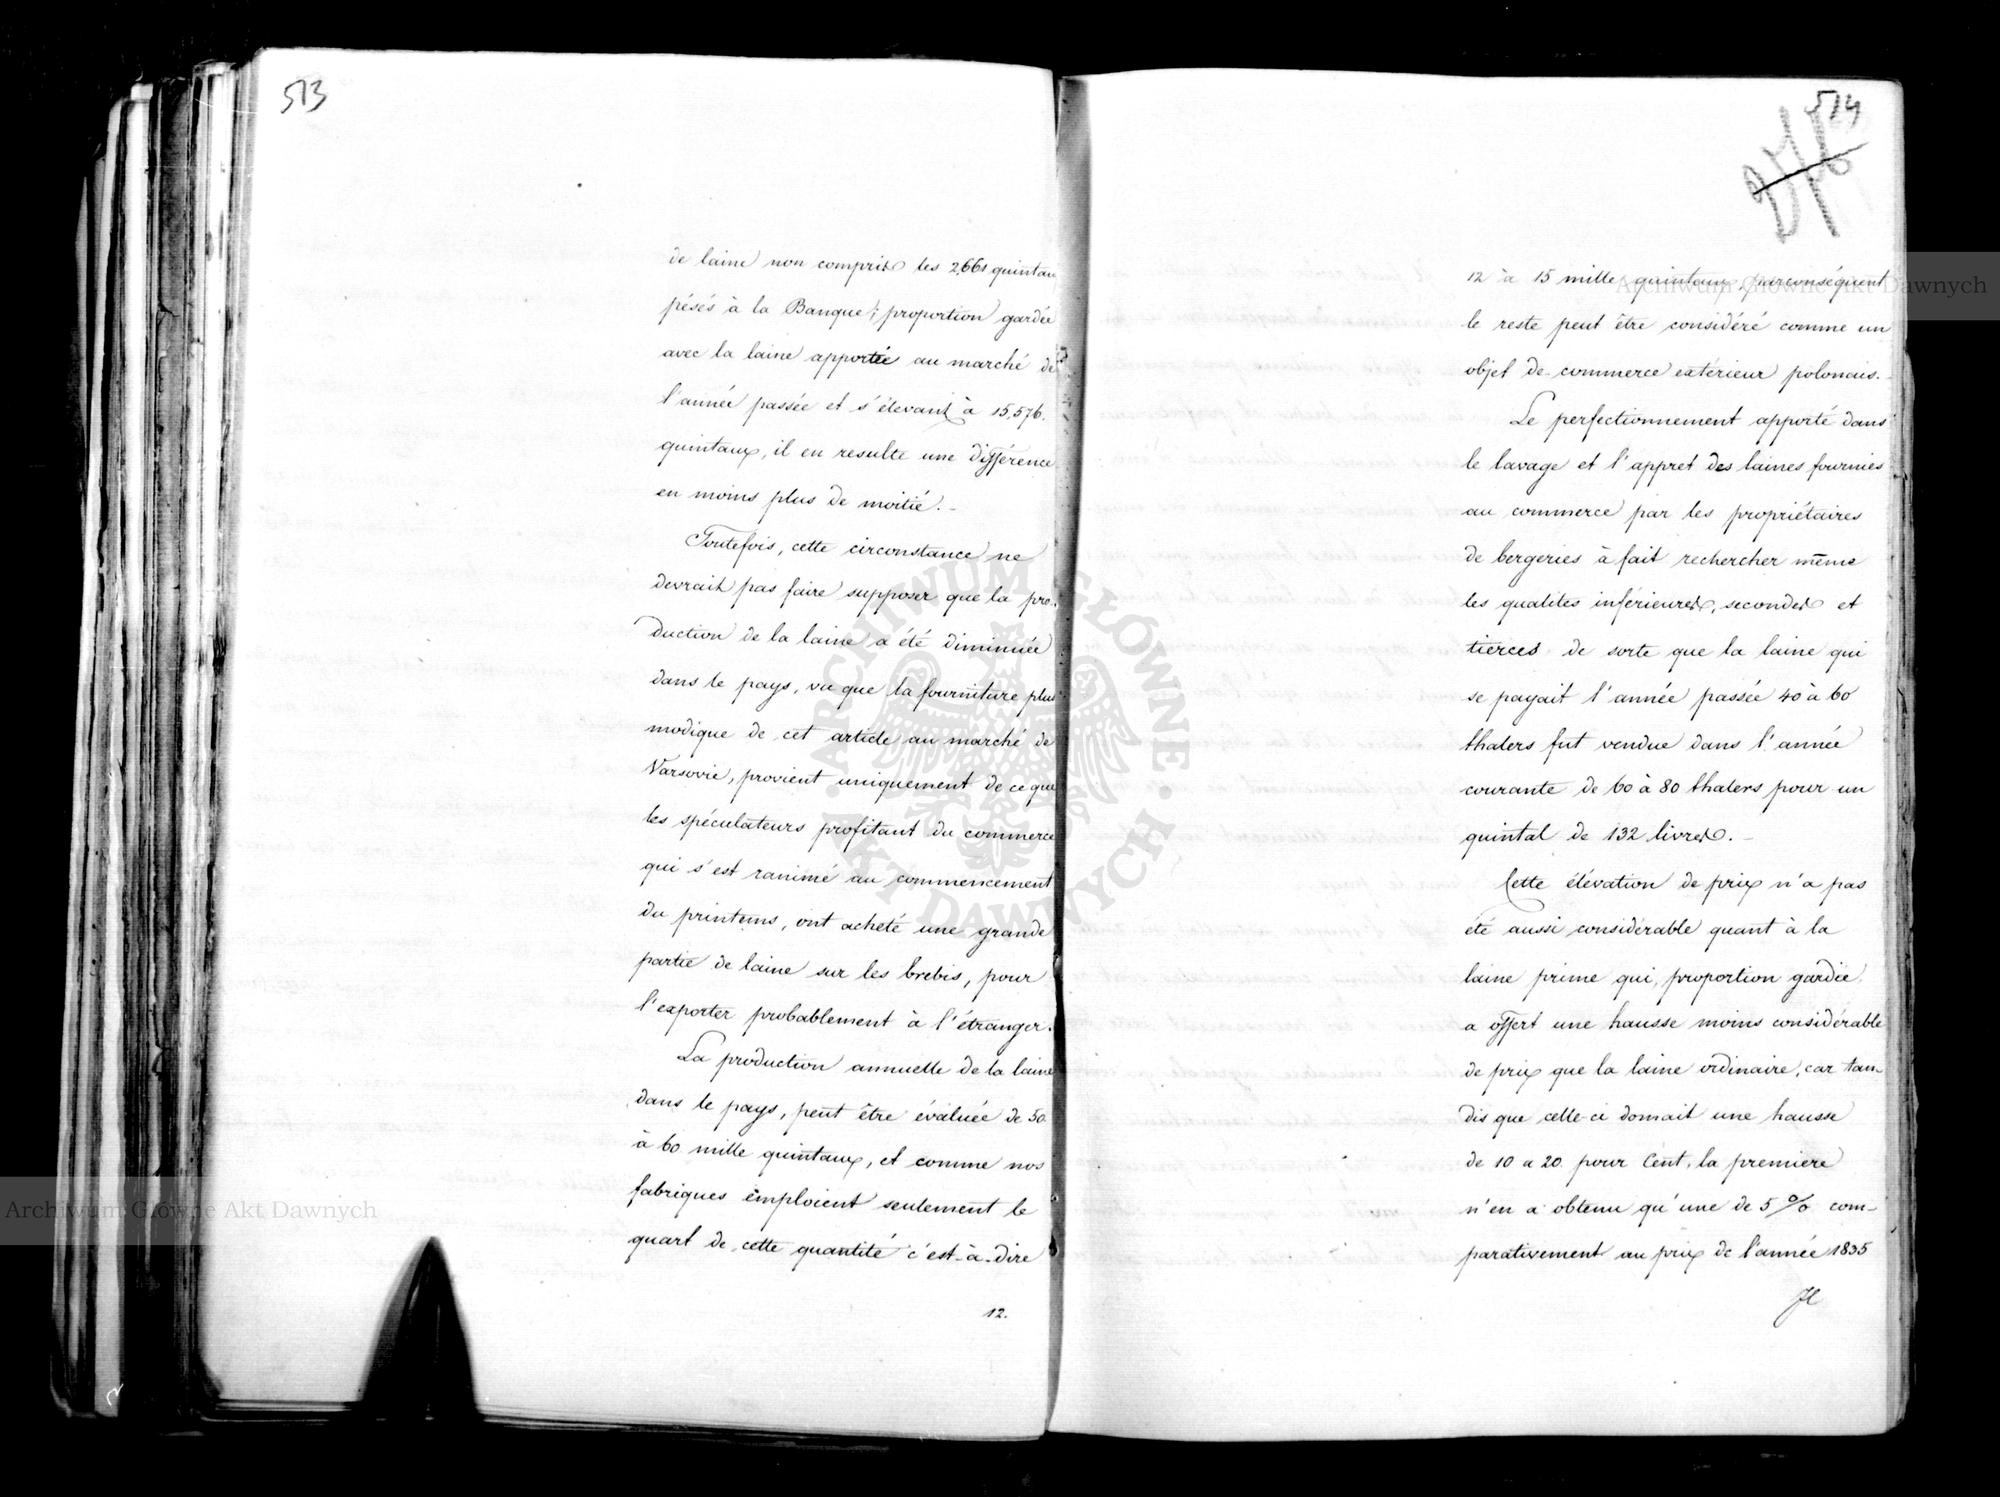 513
de laine non compris les 2,661 quintau
pésés à la Banque; proportion gardée
avec la laine apportée au marché de
l'année passée et s'élevant à 15,576.
quintaux, il en resulte une différence
en moins plus de moitié. -
Toutefois, cette circonstance ne
devrait pas faire supposer que la pro-
duction de la laine a été diminuée
dans le pays, vu que la fourniture plus
modique de cet article au marché de
Varsovie, provient uniquement de ce que
les spéculateurs profitant du commerce
qui s'est ranimé au commencement
du printems, ont acheté une grande
partie de laine sur les brebis, pour
l'exporter probablement à l'étranger.
La production annuelle de la laine
dans le pays, peut être évaluée de 50
à 60 mille quintaux, et comme nos
fabriques emploient seulement le
quart de cette quantité c'est-à-dire
12.
514
276
12 à 15 mille quintaux, parconséquent
le reste peut être considéré comme un
objet de commerce extérieur polonais. -
Le perfectionnement apporté dans
le lavage et l'appret des laines fournies
au commerce par les propriétaires
de bergeries à fait rechercher même
les qualites inférieures, secondes et
tierces de sorte que la laine qui
se payait l'année passée 40 à 60
thalers fut vendue dans l'année
courante de 60 à 80 thalers pour un
quintal de 132 livres. -
Cette élévation de prix n'a pas
été aussi considérable quant à la
laine prime qui, proportion gardée,
a offert une hausse moins considérable
de prix que la laine ordinaire, car tan-
dis que celle-ci donnait une hausse
de 10 a 20 pour Cent, la premiere
n'en a obtenu qu'une de 5 % com-
parativement au prix de l'année 1835
Il
Archiwum Główne Akt Dawnych
Archiwum Główne Akt Dawnych
ARCHIWUM GŁÓWNE AKT DAWNYCH